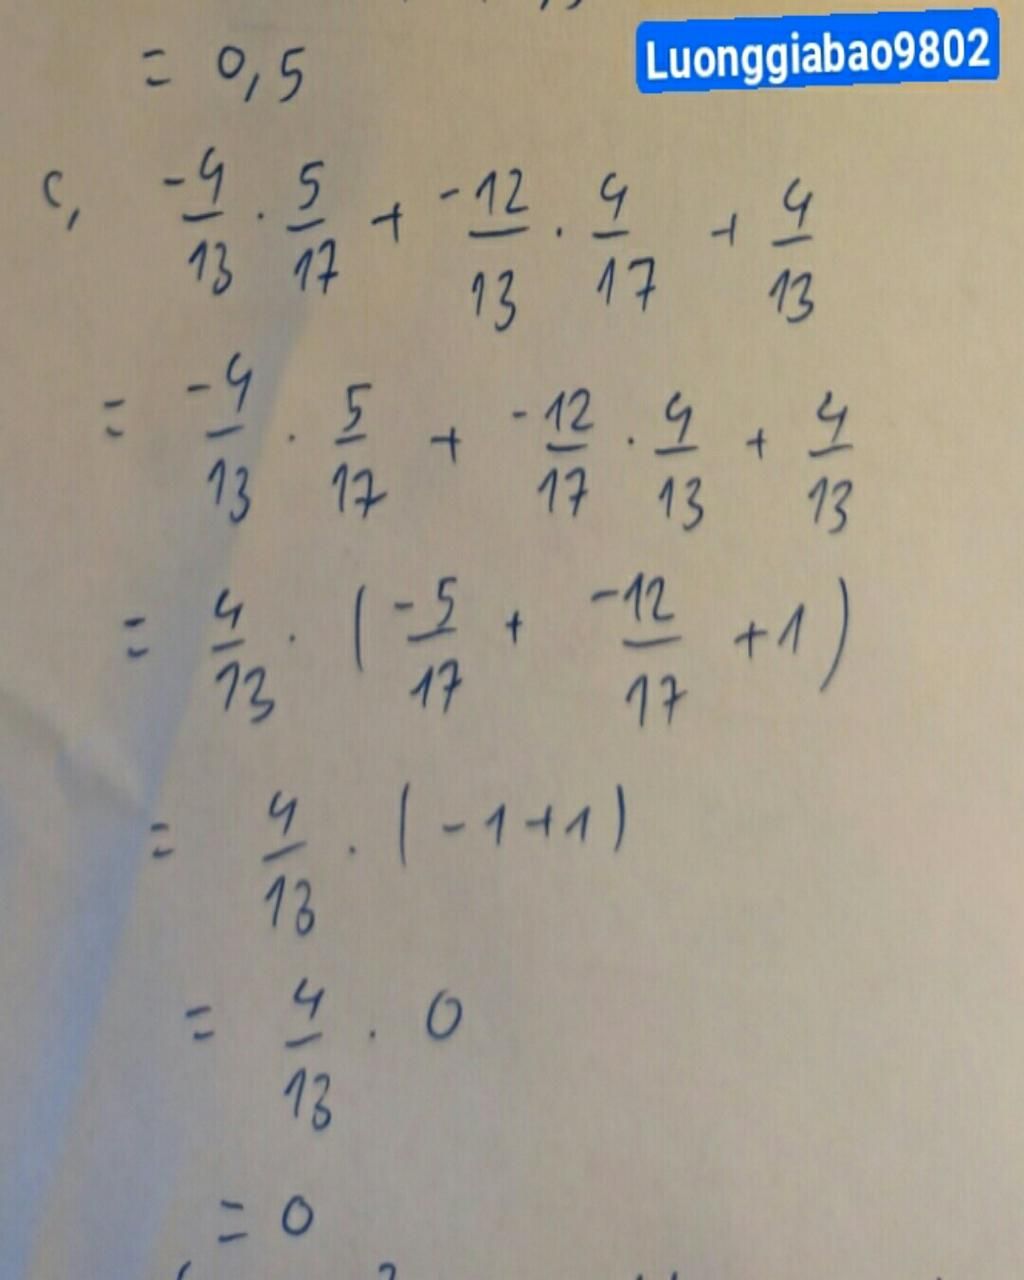 = 0,5
Luonggiabao9802
c, -4/13 . 5/17 + -12/13 . 4/17 + 4/13
= -4/13 . 5/17 + -12/17 . 4/13 + 4/13
= 4/13 . (-5/17 + -12/17 + 1)
= 4/13 . (-1+1)
= 4/13 . 0
= 0